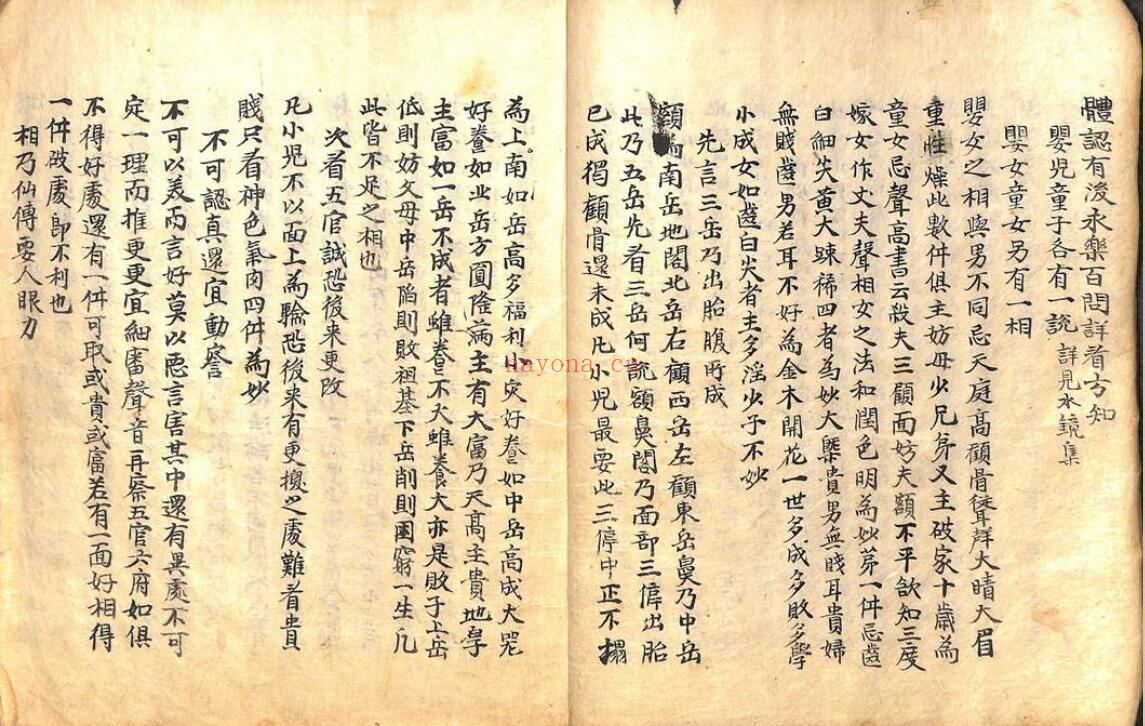 體認有浚永樂百問詳看方知
嬰兒童子各有一説 詳見水鏡集
嬰女童女另有一相
嬰女之相與男不同忌天庭高顴骨聳聲大睛大眉
重性燥此數件俱主妨母少兄弟又主破家十歲為
童女忌聲高書云殺夫三顴面妨夫額不平欲知三度
嫁女作丈夫聲相女之法和潤色明為妙第一件忌齒
白細尖黃大踈稀四者為妙大槩貴男無賤耳貴婦
無賤齒男若耳不好為金木開花一世多成多敗多學
小成女如齒白尖者主多淫少子不妙
先言三岳乃出胎腹所成
額為南岳地閣北岳右顴西岳左顴東岳鼻乃中岳
此乃五岳先看三岳何説額鼻閣乃面部三停出胎
已成獨顴骨還未成凡小兒最要此三停中正不搨
為上南如岳高多福利少灾好養如中岳高成大器
好養如北岳方圓隆滿主有大富乃天高主貴地厚
主富如一岳不成者雖養不大雖養大亦是敗子上岳
低則妨父母中岳陷則敗祖基下岳削則困窮一生凡
此皆不足之相也
次看五官誠恐後來更改
凡小兒不以面上為騐恐後來有更換之處難看貴
賤只看神色氣肉四件為妙
不可認真還宜動察
不可以美而言好莫以惡言害其中還有異處不可
定一理而推更更宜細審聲音再察五官六府如俱
不得好處還有一件可取或貴或富若有一面好相得
一件破處即不利也
相乃仙傳要人眼力
dayona.cn